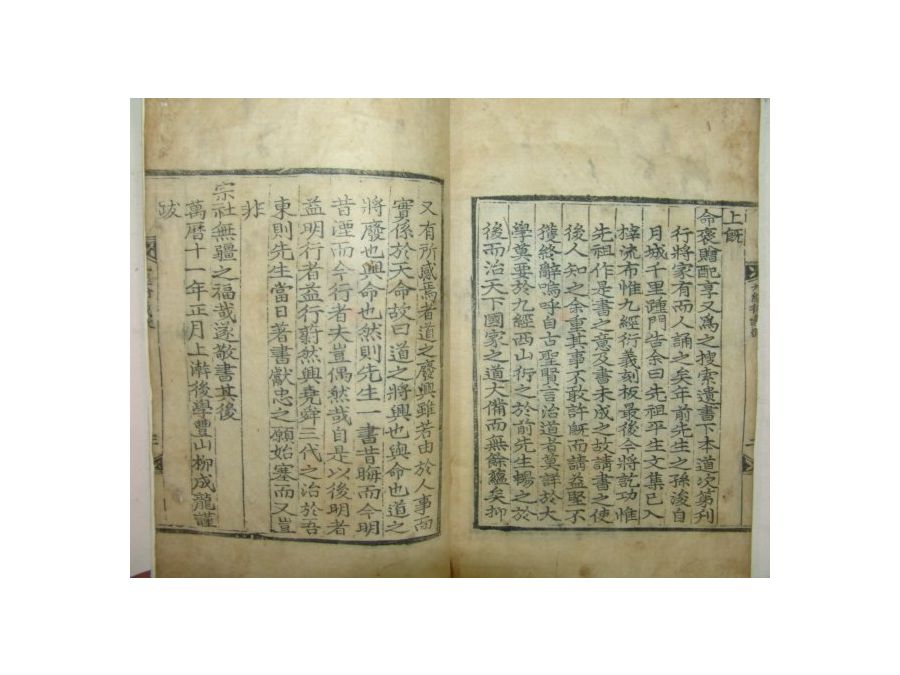 上既
命褒贈配享又爲之搜索遺書下本道次第刋
行將家有而人誦之矣年前先生之孫浚自
月城千里踵門告余曰先祖平生文集已入
梓流布惟九經衍義刻板最後今將訖功惟
先祖作是書之意及書未成之故請書之使
後人知之余重其事不敢許旣而請益堅不
獲終辭嗚呼自古聖賢言治道者莫詳於大
學莫要於九經西山衍之於前先生暢之於
後而治天下國家之道大備而無餘蘊矣抑
又有所感焉者道之廢興雖若由於人事而
實係於天命故曰道之將興也與命也道之
將廢也與命也然則先生一書昔晦而今明
昔湮而今行者夫豈偶然哉自是以後明者
益明行者益行蔚然興堯舜三代之治於吾
東則先生當日著書獻忠之願始塞而又豈
非
宗社無疆之福哉遂敬書其後
萬曆十一年正月上澣後學豐山柳成龍謹
跋